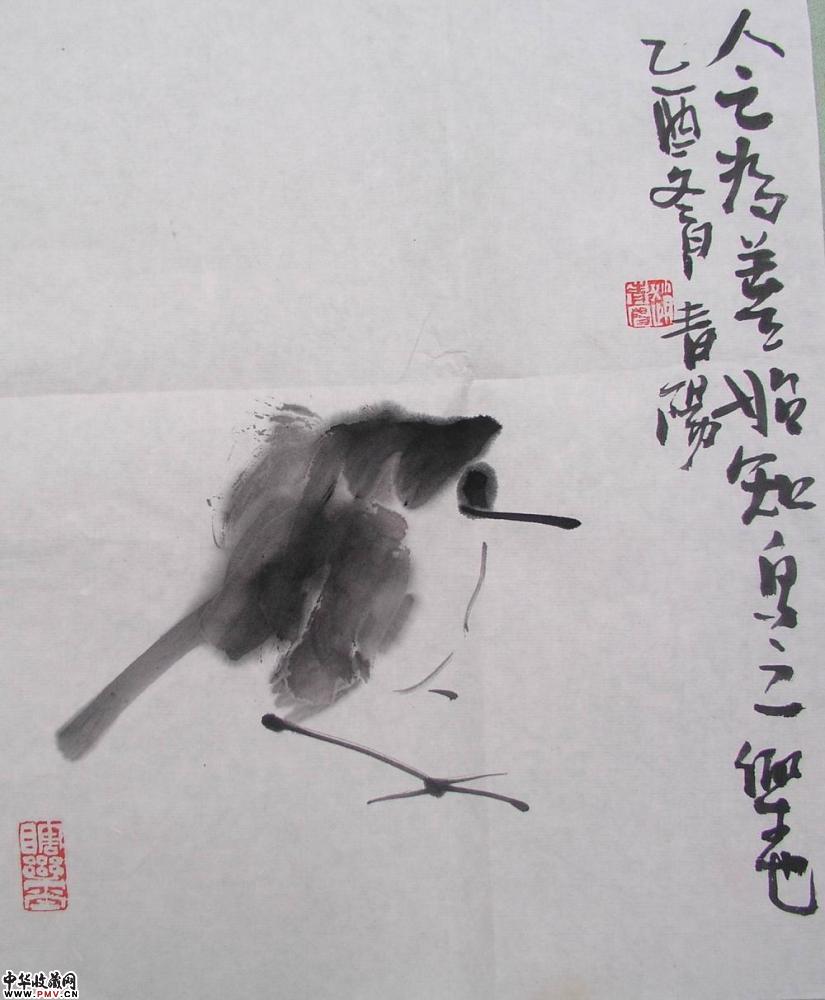 人之为始知鸟之樂也
乙酉冬月 青陽
中华收藏网
www.PMV.CN